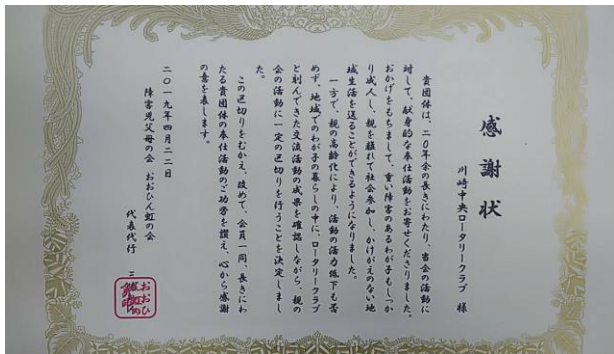 感謝状
川崎中央ロータリークラブ 様
貴団体は、二〇年余の長きにわたり、当会の活動に
対して、献身的な奉仕活動をお寄せくださりました。
おかげをもちまして、重い障害のあるわが子もしっか
り成人し、親を離れて社会参加し、かけがえのない地
域生活を送ることができるようになりました。
一方で、親の高齢化により、活動の活力低下も否
めず、地域でのわが子の暮らしの中に、ロータリークラブ
と刻んできた交流活動の成果を確認しながら、親の
会の活動に一定の区切りを行うことを決定しまし
た。
この区切りをむかえ、改めて、会員一同、長きにわ
たる貴団体の奉仕活動のご功労を讃え、心から感謝
の意を表します。
二〇一九年四月二二日
障害児父母の会 おおひん虹の会
代表代行 三